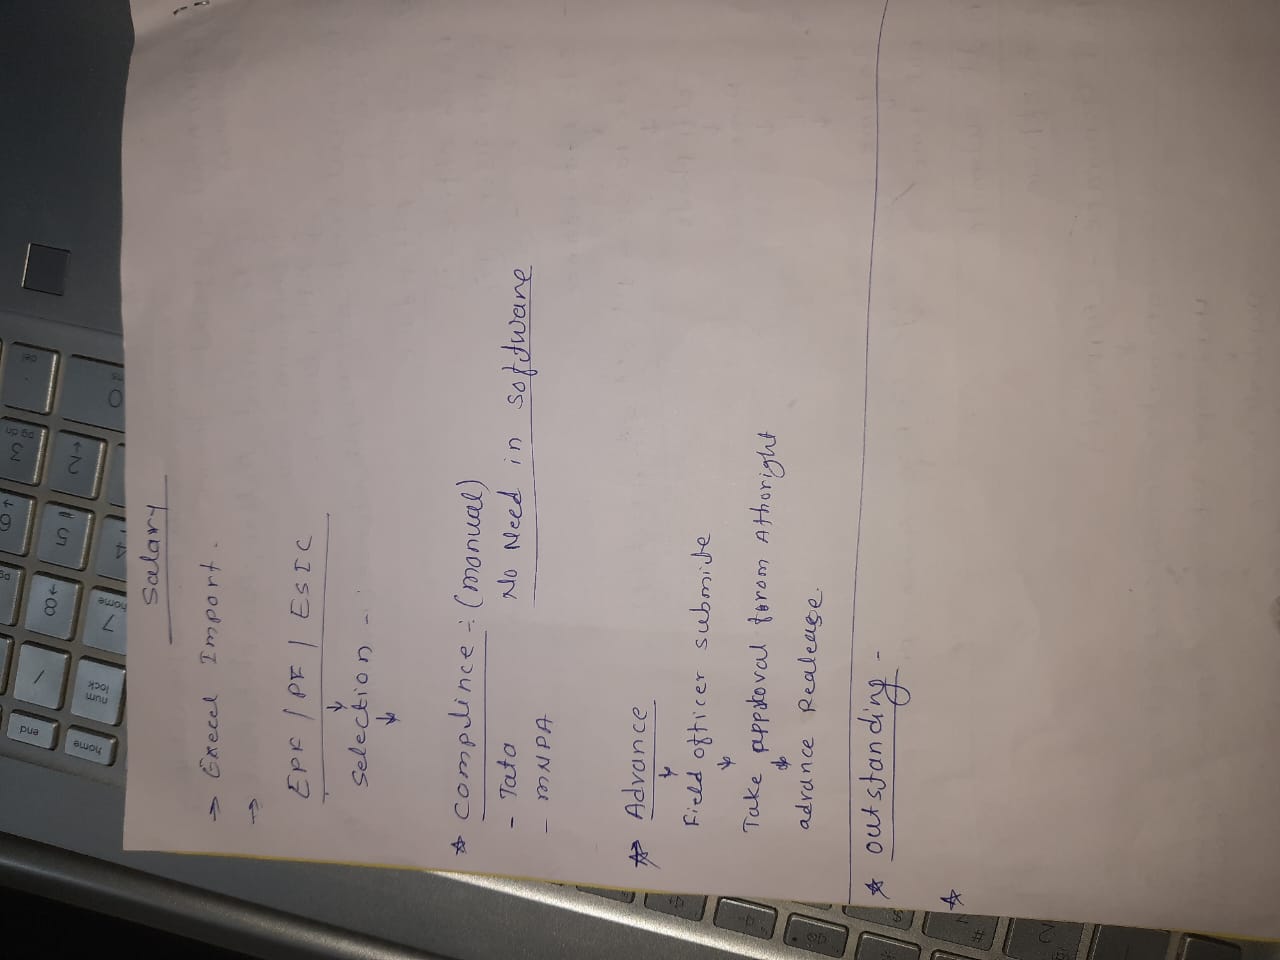 end
home
/
num
lock
8
7
home
6
5
4
3
pg dn
2
0
del
Salary
→ Execel Import.
→
EPF / PF | ESIC
↓
Selection -
↓
☆ Complince :- (manual)
- Tata No Need in software
- MNPA
☆ Advance
↓
Field officer submite
↓
Take approval forom Athoright
↓
advance Realease.
☆ outstanding -
☆
#
2